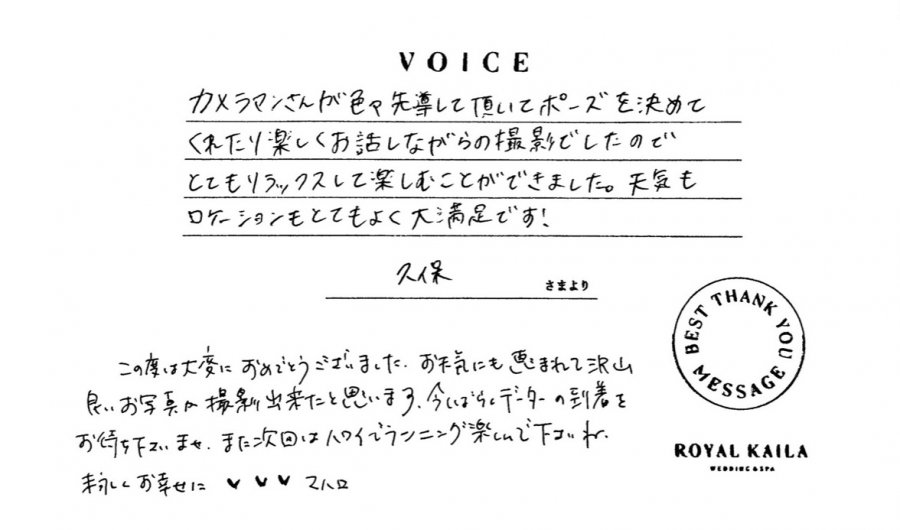 VOICE
カメラマンさんが色々先導して頂いてポーズを決めて
くれたり楽しくお話しながらの撮影でしたので
とてもリラックスして楽しむことができました。天気も
ロケーションもとてもよく大満足です！
久保 さまより
BEST THANK YOU MESSAGE
この度は大変に おめでとうございました. お天気にも恵まれて沢山
良いお写真が撮影出来たと思います、今しばらくデーターの到着を
お待ち下さいませ、また次回はハワイでランニング楽しんで下さいね、
末永くお幸せに ♥ ♥ ♥ マハロ
ROYAL KAILA
WEDDING & SPA